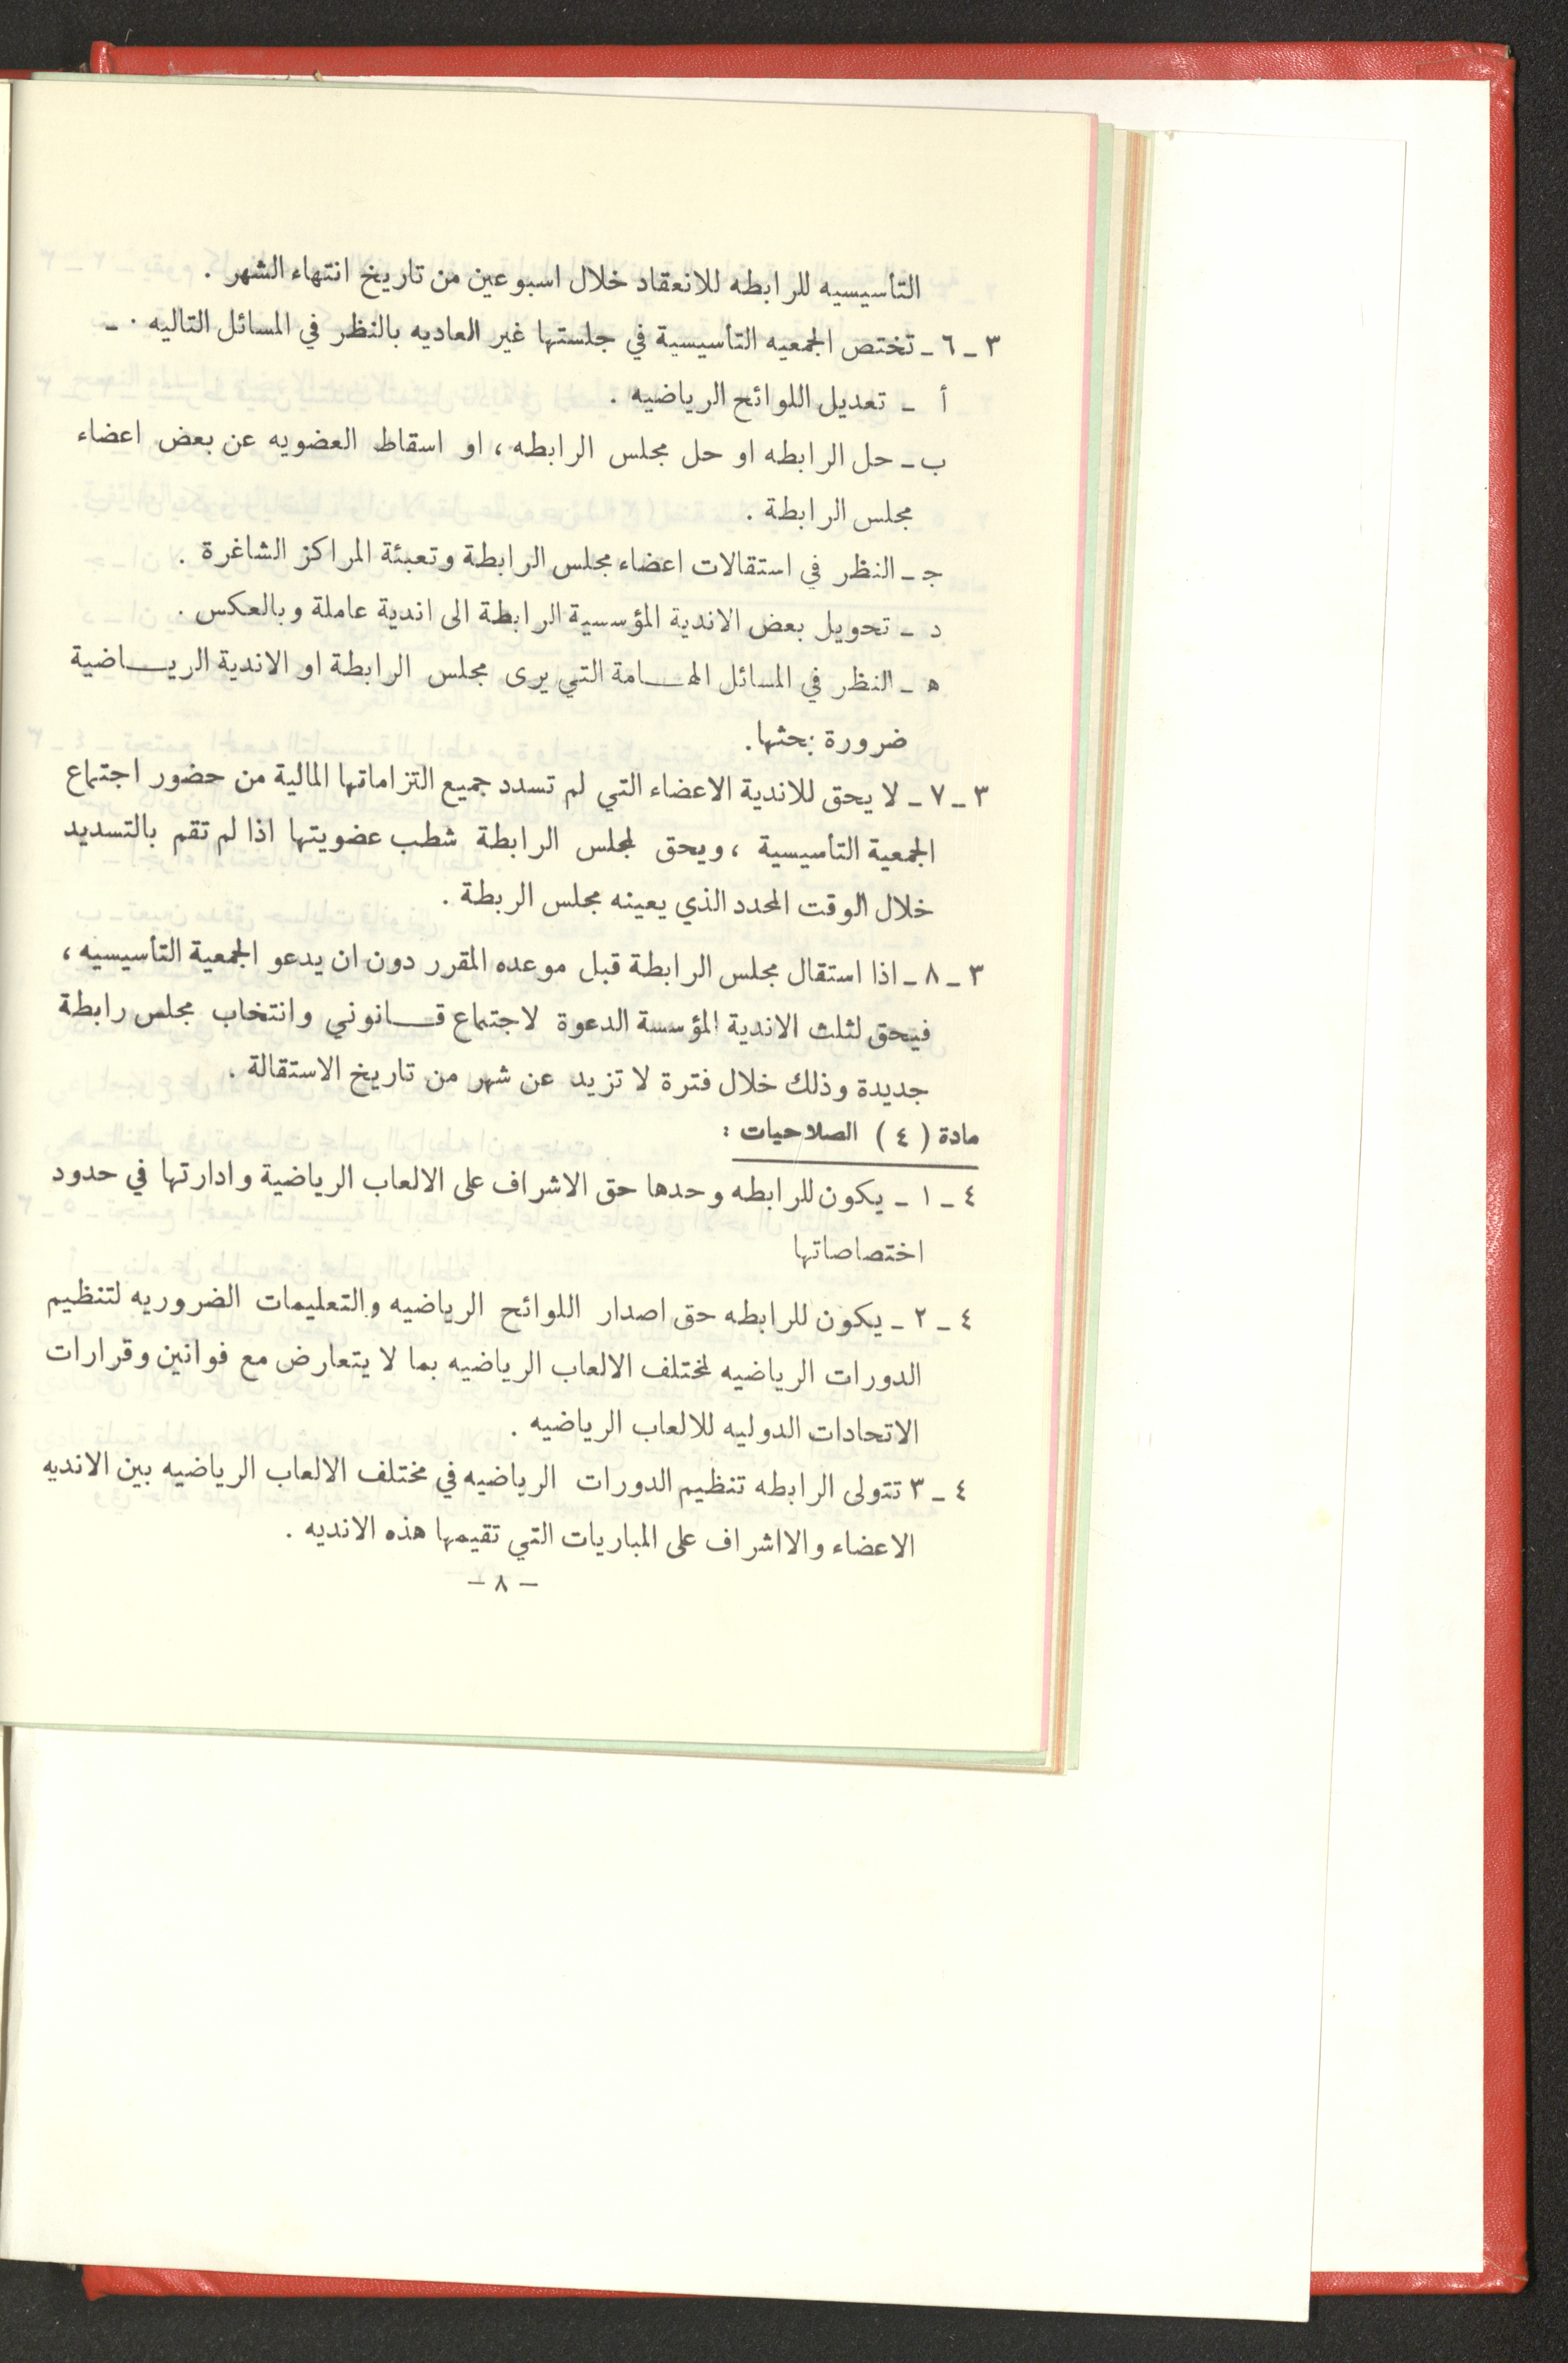 التأسيسيه للرابطه للانعقاد خلال اسبوعين من تاريخ انتهاء الشهر .
٣ ـ ٦ ـ تختص الجمعيه التأسيسية في جلستها غير العاديه بالنظر في المسائل التاليه . ـ
أ ـ تعديل اللوائح الرياضيه .
ب ـ حل الرابطه او حل مجلس الرابطه ، او اسقاط العضويه عن بعض اعضاء
مجلس الرابطة .
جـ ـ النظر في استقالات اعضاء مجلس الرابطة وتعبئة المراكز الشاغرة .
د ـ تحويل بعض الاندية المؤسسية الرابطة الى اندية عاملة وبالعكس .
ه ـ النظر في المسائل الهـــامة التي يرى مجلس الرابطة او الاندية الريـــاضية
ضرورة بحثها .
٣ ـ ٧ ـ لا يحق للاندية الاعضاء التي لم تسدد جميع التزاماتها المالية من حضور اجتماع
الجمعية التأسيسية ، ويحق لمجلس الرابطة شطب عضويتها اذا لم تقم بالتسديد
خلال الوقت المحدد الذي يعينه مجلس الربطة .
٣ ـ ٨ ـ اذا استقال مجلس الرابطة قبل موعده المقرر دون ان يدعو الجمعية التأسيسيه ،
فيحق لثلث الاندية المؤسسة الدعوة لاجتماع قـــانوني وانتخاب مجلس رابطة
جديدة وذلك خلال فترة لا تزيد عن شهر من تاريخ الاستقالة .
مادة ( ٤ ) الصلاحيات :
٤ ـ ١ ـ يكون للرابطه وحدها حق الاشراف على الالعاب الرياضية وادارتها في حدود
اختصاصاتها
٤ ـ ٢ ـ يكون للرابطه حق اصدار اللوائح الرياضيه والتعليمات الضروريه لتنظيم
الدورات الرياضيه لمختلف الالعاب الرياضيه بما لا يتعارض مع فوانين وقرارات
الاتحادات الدوليه للالعاب الرياضيه .
٤ ـ ٣ تتولى الرابطه تنظيم الدورات الرياضيه في مختلف الالعاب الرياضيه بين الانديه
الاعضاء والااشراف على المباريات التي تقيمها هذه الانديه .
– ٨ –